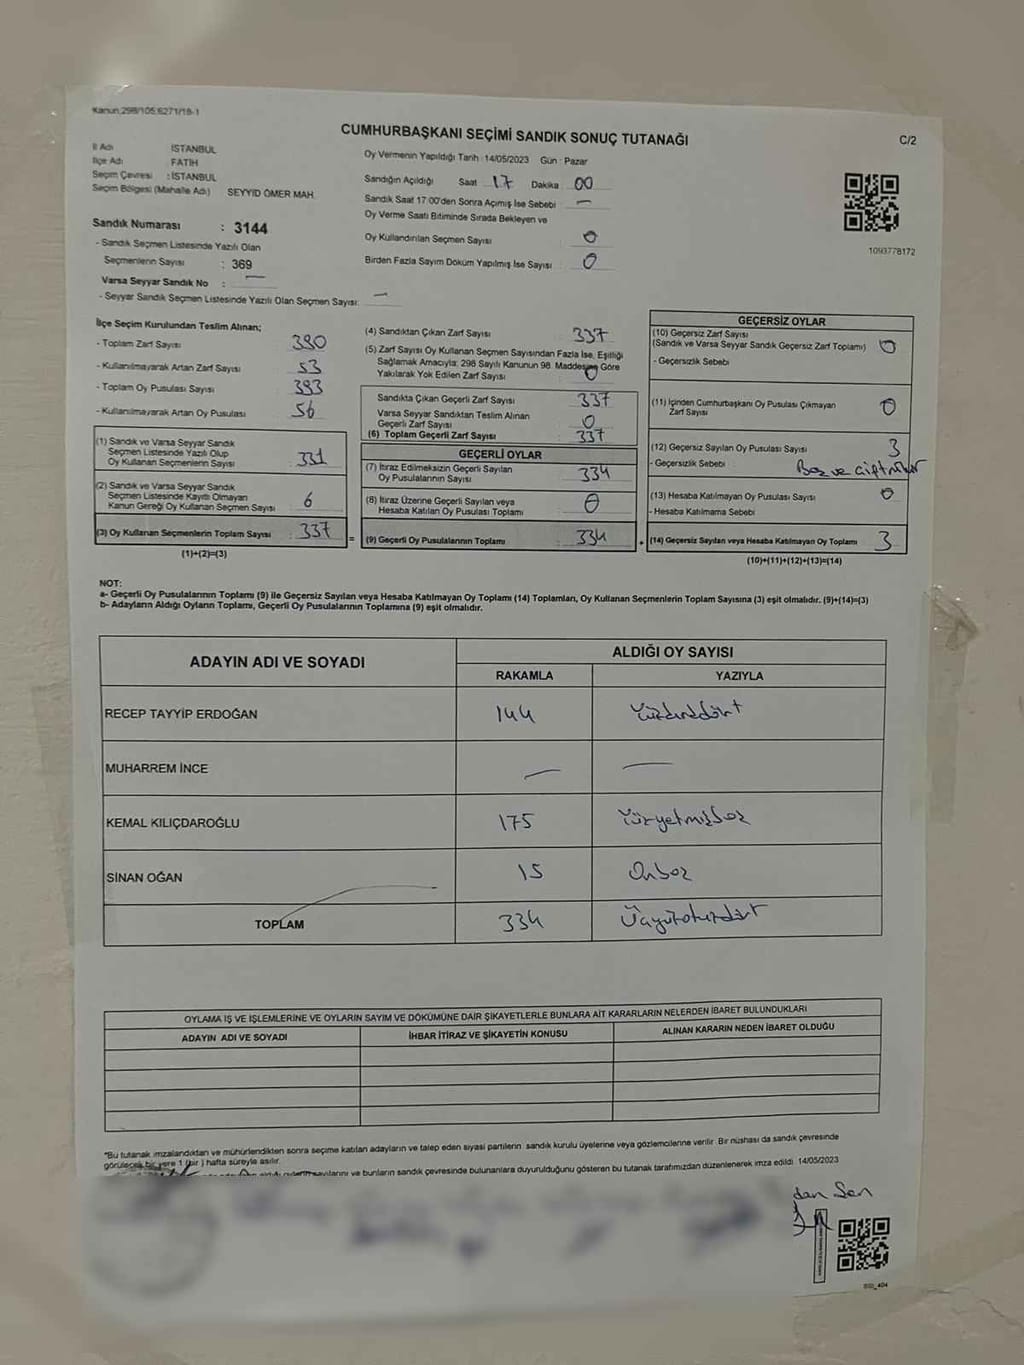 Kanun:298/105;6271/18-1
CUMHURBAŞKANI SEÇİMİ SANDIK SONUÇ TUTANAĞI
C/2
İl Adı İSTANBUL
İlçe Adı FATİH
Seçim Çevresi : İSTANBUL
Seçim Bölgesi (Mahalle Adı) SEYYİD ÖMER MAH.
Sandık Numarası : 3144
- Sandık Seçmen Listesinde Yazılı Olan
Seçmenlerin Sayısı : 369
Varsa Seyyar Sandık No : —
- Seyyar Sandık Seçmen Listesinde Yazılı Olan Seçmen Sayısı: —
Oy Vermenin Yapıldığı Tarih :14/05/2023 Gün : Pazar
Sandığın Açıldığı Saat 17 Dakika 00
Sandık Saat 17:00'den Sonra Açımış İse Sebebi —
Oy Verme Saati Bitiminde Sırada Bekleyen ve
Oy Kullandırılan Seçmen Sayısı 0
Birden Fazla Sayım Döküm Yapılmış İse Sayısı 0
1093778172
İlçe Seçim Kurulundan Teslim Alınan;
- Toplam Zarf Sayısı 390
- Kullanılmayarak Artan Zarf Sayısı 53
- Toplam Oy Pusulası Sayısı 393
- Kullanılmayarak Artan Oy Pusulası 56
(1) Sandık ve Varsa Seyyar Sandık
Seçmen Listesinde Yazılı Olup
Oy Kullanan Seçmenlerin Sayısı 331
(2) Sandık ve Varsa Seyyar Sandık
Seçmen Listesinde Kayıtlı Olmayan
Kanun Gereği Oy Kullanan Seçmen Sayısı 6
(3) Oy Kullanan Seçmenlerin Toplam Sayısı 337
(1)+(2)=(3)
=
(4) Sandıktan Çıkan Zarf Sayısı 337
(5) Zarf Sayısı Oy Kullanan Seçmen Sayısından Fazla İse, Eşitliği
Sağlamak Amacıyla; 298 Sayılı Kanunun 98. Maddesine Göre
Yakılarak Yok Edilen Zarf Sayısı 0
Sandıkta Çıkan Geçerli Zarf Sayısı 337
Varsa Seyyar Sandıktan Teslim Alınan
Geçerli Zarf Sayısı 0
(6) Toplam Geçerli Zarf Sayısı 337
GEÇERLİ OYLAR
(7) İtiraz Edilmeksizin Geçerli Sayılan
Oy Pusulalarının Sayısı 334
(8) İtiraz Üzerine Geçerli Sayılan veya
Hesaba Katılan Oy Pusulası Toplamı 0
(9) Geçerli Oy Pusulalarının Toplamı 334
+
GEÇERSİZ OYLAR
(10) Geçersiz Zarf Sayısı
(Sandık ve Varsa Seyyar Sandık Geçersiz Zarf Toplamı) 0
- Geçersizlik Sebebi
(11) İçinden Cumhurbaşkanı Oy Pusulası Çıkmayan
Zarf Sayısı 0
(12) Geçersiz Sayılan Oy Pusulası Sayısı 3
- Geçersizlik Sebebi
(13) Hesaba Katılmayan Oy Pusulası Sayısı 0
- Hesaba Katılmama Sebebi
(14) Geçersiz Sayılan veya Hesaba Katılmayan Oy Toplamı 3
(10)+(11)+(12)+(13)=(14)
NOT:
a- Geçerli Oy Pusulalarının Toplamı (9) ile Geçersiz Sayılan veya Hesaba Katılmayan Oy Toplamı (14) Toplamları, Oy Kullanan Seçmenlerin Toplam Sayısına (3) eşit olmalıdır. (9)+(14)=(3)
b- Adayların Aldığı Oyların Toplamı, Geçerli Oy Pusulalarının Toplamına (9) eşit olmalıdır.
ADAYIN ADI VE SOYADI ALDIĞI OY SAYISI
RAKAMLA YAZIYLA
RECEP TAYYİP ERDOĞAN 144 Yüzkırkdört
MUHARREM İNCE — —
KEMAL KILIÇDAROĞLU 175 Yüzyetmişbeş
SİNAN OĞAN 15 Onbeş
TOPLAM 334 Üçyüzotuzdört
OYLAMA İŞ VE İŞLEMLERİNE VE OYLARIN SAYIM VE DÖKÜMÜNE DAİR ŞİKAYETLERLE BUNLARA AİT KARARLARIN NELERDEN İBARET BULUNDUKLARI
ADAYIN ADI VE SOYADI İHBAR İTİRAZ VE ŞİKAYETİN KONUSU ALINAN KARARIN NEDEN İBARET OLDUĞU
*Bu tutanak imzalandıktan ve mühürlendikten sonra seçime katılan adayların ve talep eden siyasi partilerin sandık kurulu üyelerine veya gözlemcilerine verilir. Bir nüshası da sandık çevresinde
görülecek bir yere 1 (bir) hafta süreyle asılır.
sayılarını ve bunların sandık çevresinde bulunanlara duyurulduğunu gösteren bu tutanak tarafımızdan düzenlenerek imza edildi. 14/05/2023
dan Şen